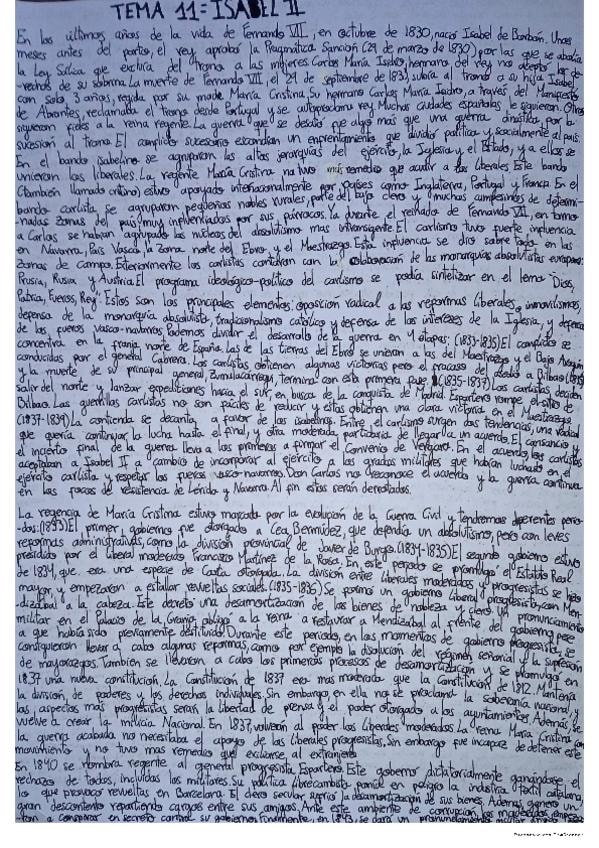 TEMA 11: ISABEL II
En los últimos años de la vida de Fernando VII, en octubre de 1830, nació Isabel de Borbón. Unos
meses antes del parto, el rey aprobó la Pragmática Sanción (29 de marzo de 1830) por las que se abolía
la Ley Sálica que excluía del trono a las mujeres. Carlos María Isidro, hermano del rey no aceptó los de-
-rechos de su sobrina. La muerte de Fernando VII, el 29 de septiembre de 1833, subiría al trono a su hija Isabel,
con solo 3 años, regida por su madre María Cristina. Su hermano Carlos María Isidro, a través del Manifiesto
de Abrantes, reclamaba el trono desde Portugal y se autoproclama rey. Muchas ciudades españolas le siguieron. Otros
siguieron fieles a la reina regente. La guerra que se desató fue algo más que una guerra dinástica, por la
sucesión al trono. El conflicto sucesorio escondían un enfrentamiento que dividió política y socialmente al país.
En el bando isabelino se agruparon las altas jerarquías del ejército, la Iglesia y el Estado, y a ellos se
unieron los liberales. La regente María Cristina no tuvo más remedio que acudir a los liberales. Este bando
(también llamado cristino) estuvo apoyado internacionalmente por países como Inglaterra, Portugal y Francia. En el
bando carlista, se agruparon pequeños nobles rurales, parte del bajo clero y muchos campesinos de determi-
-nadas zonas del país, muy influenciados por sus párrocos. Ya durante el reinado de Fernando VII, en torno
a Carlos se habían agrupado los núcleos del absolutismo más intransigente. El carlismo tuvo fuerte influencia
en Navarra, País Vasco, la zona norte del Ebro, y el Maestrazgo. Esta influencia se dio sobre todo en las
zonas de campo. Exteriormente los carlistas contaron con la colaboración de las monarquías absolutistas europeas:
Prusia, Rusia y Austria. El programa ideológico-político del carlismo se podía sintetizar en el lema "Dios,
Patria, Fueros, Rey". Estos son los principales elementos: oposición radical a las reformas liberales, inmovilismo,
defensa de la monarquía absolutista, tradicionalismo católico y defensa de los intereses de la Iglesia, y defensa
de los fueros vasco-navarros. Podemos dividir el desarrollo de la guerra en 4 etapas: (1833-1835) El conflicto se
concentra en la franja norte de España. Las de las tierras del Ebro se unieron a las del Maestrazgo y el Bajo Aragón
conducidas por el general Cabrera. Los carlistas obtienen algunas victorias pero el fracaso del asedio a Bilbao (1835)
y la muerte de su principal general, Zumalacárregui, termina con esta primera fase. (1835-1837) Los carlistas deciden
salir del norte y lanzar expediciones hacia el sur, en busca de la conquista de Madrid. Espartero rompe el sitio de
Bilbao. Las guerrillas carlistas no son fáciles de reducir y estas obtienen una clara victoria en el Maestrazgo
(1837-1839) La contienda se decanta a favor de los isabelinos. Entre el carlismo surgen dos tendencias, una radical
que quería continuar la lucha hasta el final, y otra moderada, partidaria de llegar a un acuerdo. El cansancio y
el incierto final de la guerra lleva a los primeros a firmar el Convenio de Vergara. En el acuerdo, los carlistas
aceptaban a Isabel II a cambio de incorporar al ejército a los grados militares que habían luchado en el
ejército carlista y respetar los fueros vasco-navarros. Don Carlos no reconoce el acuerdo y la guerra continua
en las focos de resistencia de Lérida y Navarra. Al fin estos serán derrotados.
La regencia de María Cristina estuvo marcada por la evolución de la Guerra Civil y tendremos diferentes perio-
-dos: (1833) El primer gobierno fue otorgado a Cea Bermúdez, que defendía un absolutismo, pero con leves
reformas administrativas, como la división provincial de Javier de Burgos. (1834-1835) El segundo gobierno estuvo
presidido por el liberal moderado Francisco Martínez de la Rosa. En este periodo se promulgó el Estatuto Real
de 1834, que era una especie de Carta otorgada. La división entre liberales moderados y progresistas se hizo
mayor, y empezaron a estallar revueltas sociales. (1835-1836) Se formó un gobierno liberal progresista, con Men-
dizábal a la cabeza. Este decretó una desamortización de los bienes de nobleza y clero. Un pronunciamiento
militar en el Palacio de la Granja, obligó a la reina a restaurar a Mendizábal al frente del gobierno, pese
a que había sido previamente destituido. Durante este periodo, en los momentos de gobierno progresista, se
consiguieron llevar a cabo algunas reformas, como por ejemplo la disolución del régimen señorial y la supresión
de mayorazgos. También se llevaron a cabo los primeros procesos de desamortización y se promulgó en
1837 una nueva constitución. La Constitución de 1837 era más moderada que la Constitución de 1812. Mantenía
la división de poderes y los derechos individuales. Sin embargo, en ella no se proclama la soberanía nacional, y
los aspectos más progresistas serán la libertad de prensa y el poder otorgado a los ayuntamientos. Además se
vuelve a crear la milicia Nacional. En 1837, volvieron al poder los liberales moderados. La reina María Cristina con
la guerra acabada no necesitaba el apoyo de las liberales progresistas. Sin embargo fue incapaz de detener este
movimiento y no tuvo más remedio que exiliarse al extranjero.
En 1840 se nombra regente al general progresista Espartero. Este gobernó dictatorialmente ganándose el
rechazo de todos, incluidos los militares. Su política librecambista ponía en peligro la industria textil catalana,
lo que provocó revueltas en Barcelona. El clero secular sufrió la desamortización de sus bienes. Además, generó un
gran descontento repartiendo cargos entre sus amigos. Ante este ambiente de corrupción, los moderados empeza-
-ron a conspirar en secreto contra su gobierno. Finalmente, en 1843, se dará un pronunciamiento militar